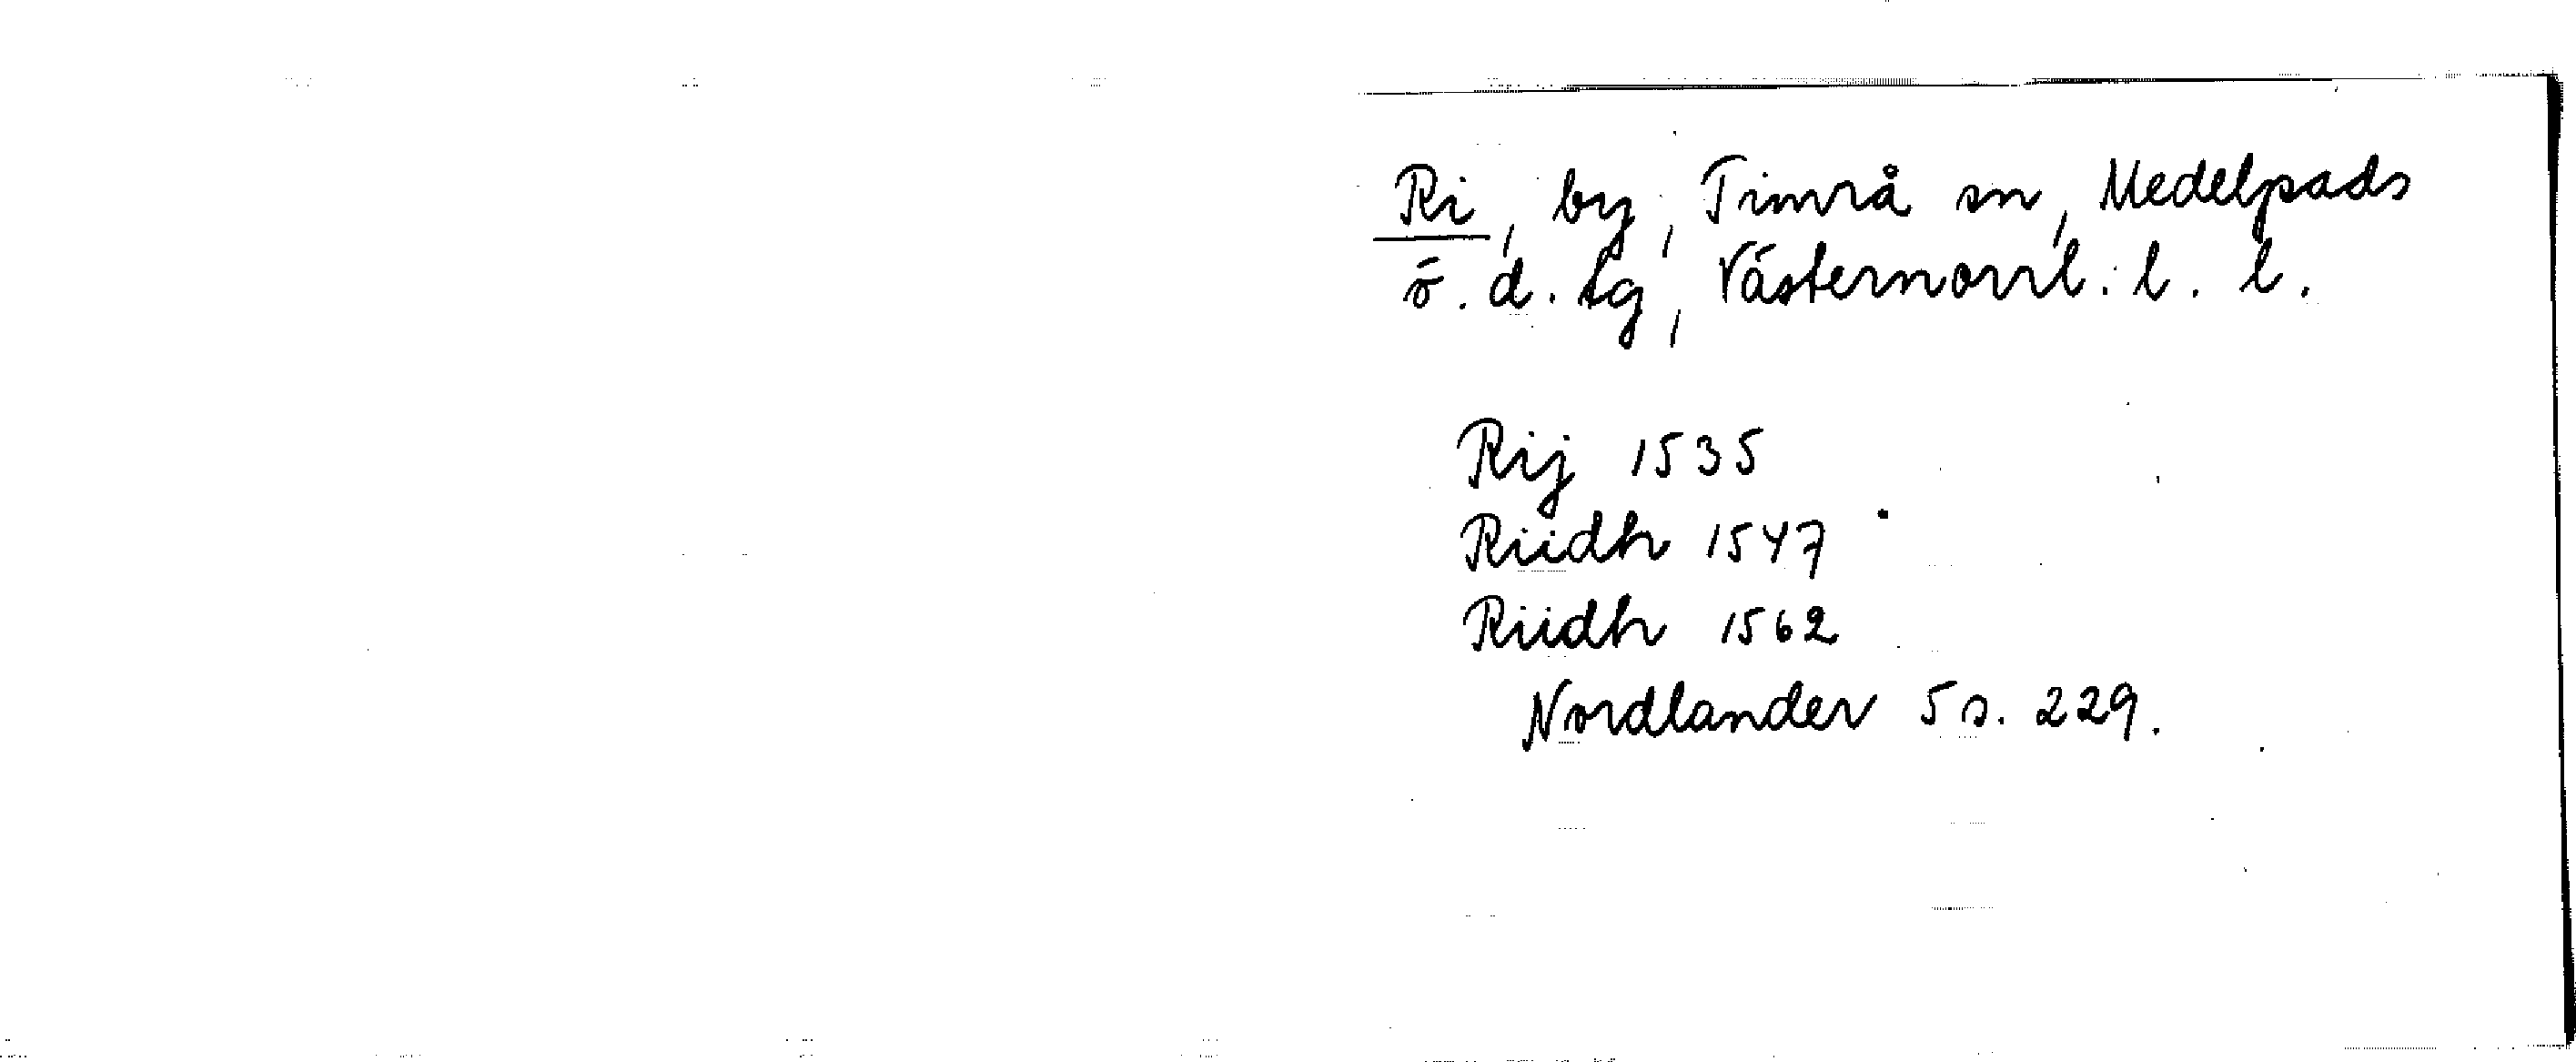 Ri, by, Timrå sn, Medelpads
ö. d. tg, Västernorrl:s l. l.
Rij 1535
Riidh 1547
Riidh 1562
Nordlander 5 s. 229.